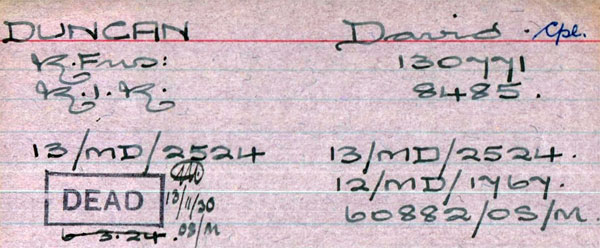 DUNCAN David. Cpl.
R. Fus: 130771
R.I.R. 8485.
13/MD/2524 13/MD/2524.
12/MD/1767.
DEAD 13/11/30 60882/OS/M.
6 3.24. OS/M